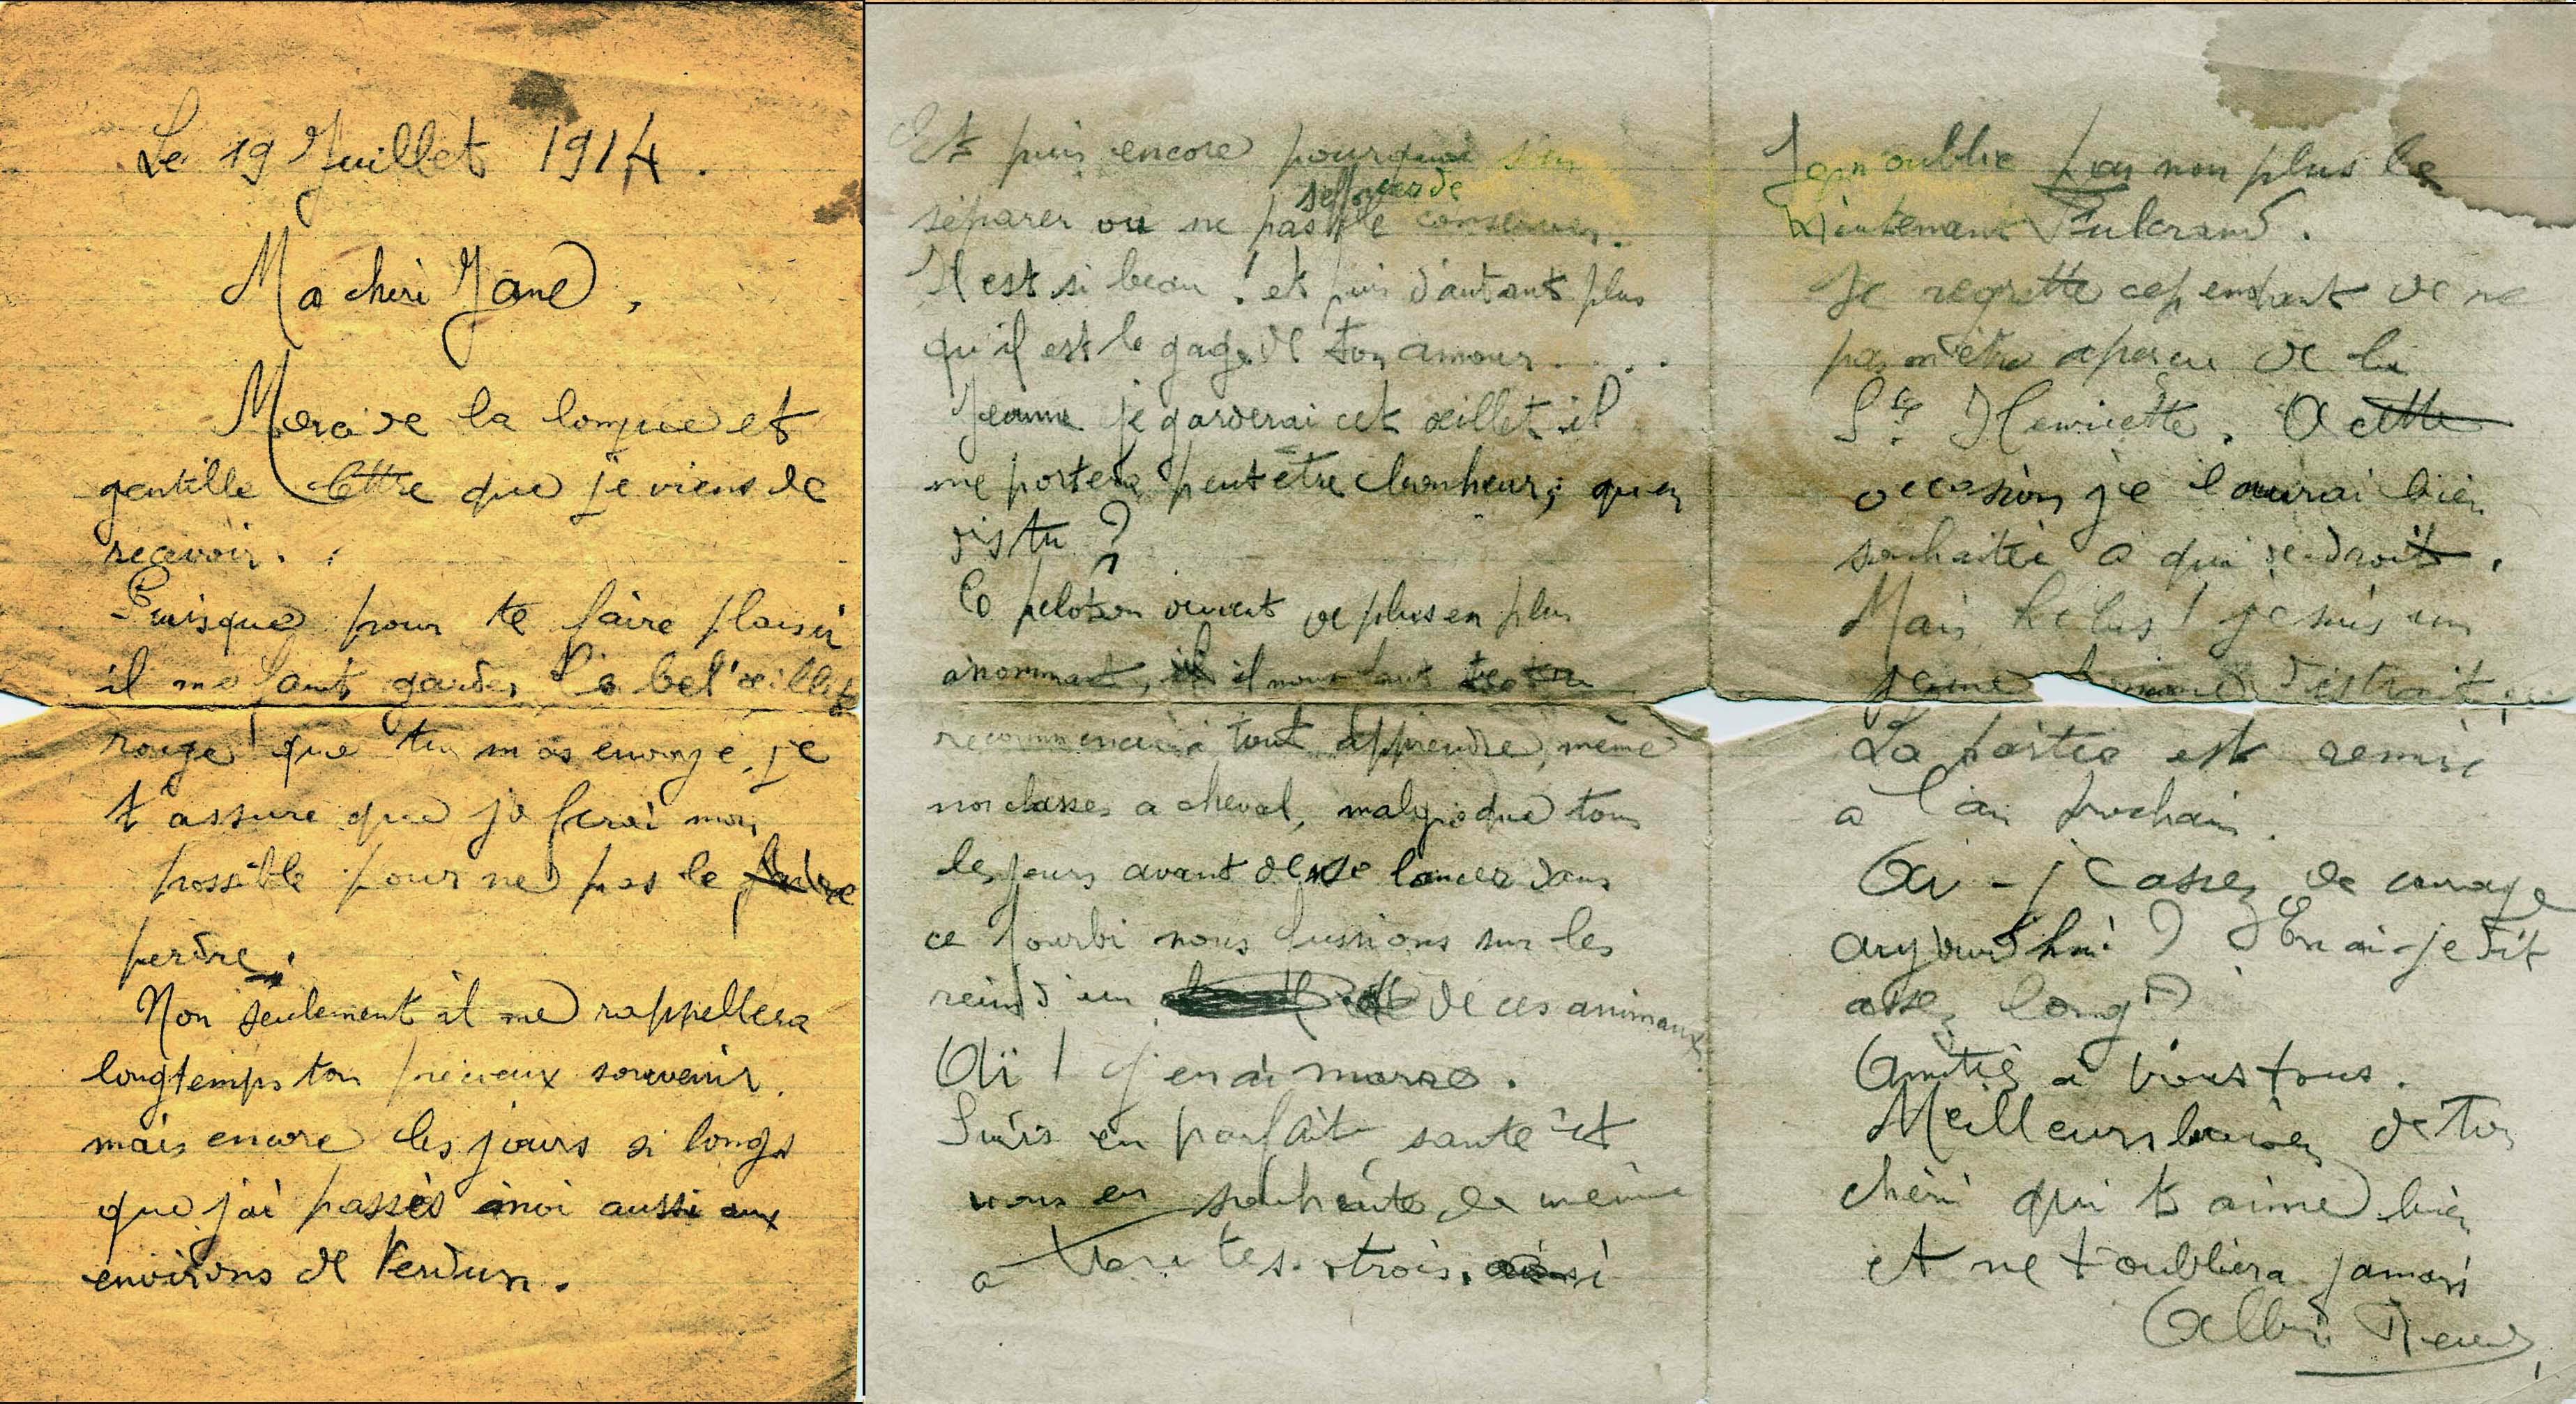 Le 19 Juillet 1914.
Ma chéri Jane,
Merci de la longue et
gentille lettre que je viens de
recevoir.
Puisque pour te faire plaisir
il me faut garder le bel œillet
rouge que tu m as envoyé, je
t'assure que je ferai mon
possible pour ne pas le
perdre.
Non seulement il me rappellera
longtemps ton précieux souvenir
mais encore les jours si longs
que j'ai passés moi aussi aux
environs de Verdun.
Et puis encore pourquoi s'en
séparer ou ne pas le conserver.
Il est si beau ! et puis d'autant plus
qu'il est le gage de ton amour....
Jeanne je garderai cet œillet il
me portera peut être bonheur; qu'en
dis tu ?
Le peloton devient de plus en plus
il nous faut
recommencer à tout apprendre, même
nos classes a cheval, malgré que tous
les jours avant de se lancer dans
ce fourbi nous fussions sur les
reins d'un de ces animaux
Aï ! j'en ai marre.
Suis en parfaite santé et
vous en souhaite de même
à toutes trois. ainsi
Je n'oublie pas non plus le
Lieutenant Fulcrand.
Je regrette cependant de ne
pas m'être aperçu de la
Ste Henriette. A cette
occasion je l aurai bien
souhaitée à qui de droit.
Mais hélas ! je suis un
jeune homme distrait
La partie est remise
à l'an prochain.
Ai-je assez de courage
aujourd'hui ? En ai-je dit
assez long ?
Amitiés à vous tous.
Meilleurs baisers de ton
chéri qui t aime bien
et ne t oubliera jamais